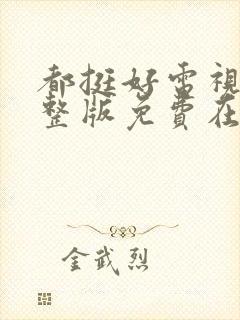 都挺好電視
整版免費在
金武烈